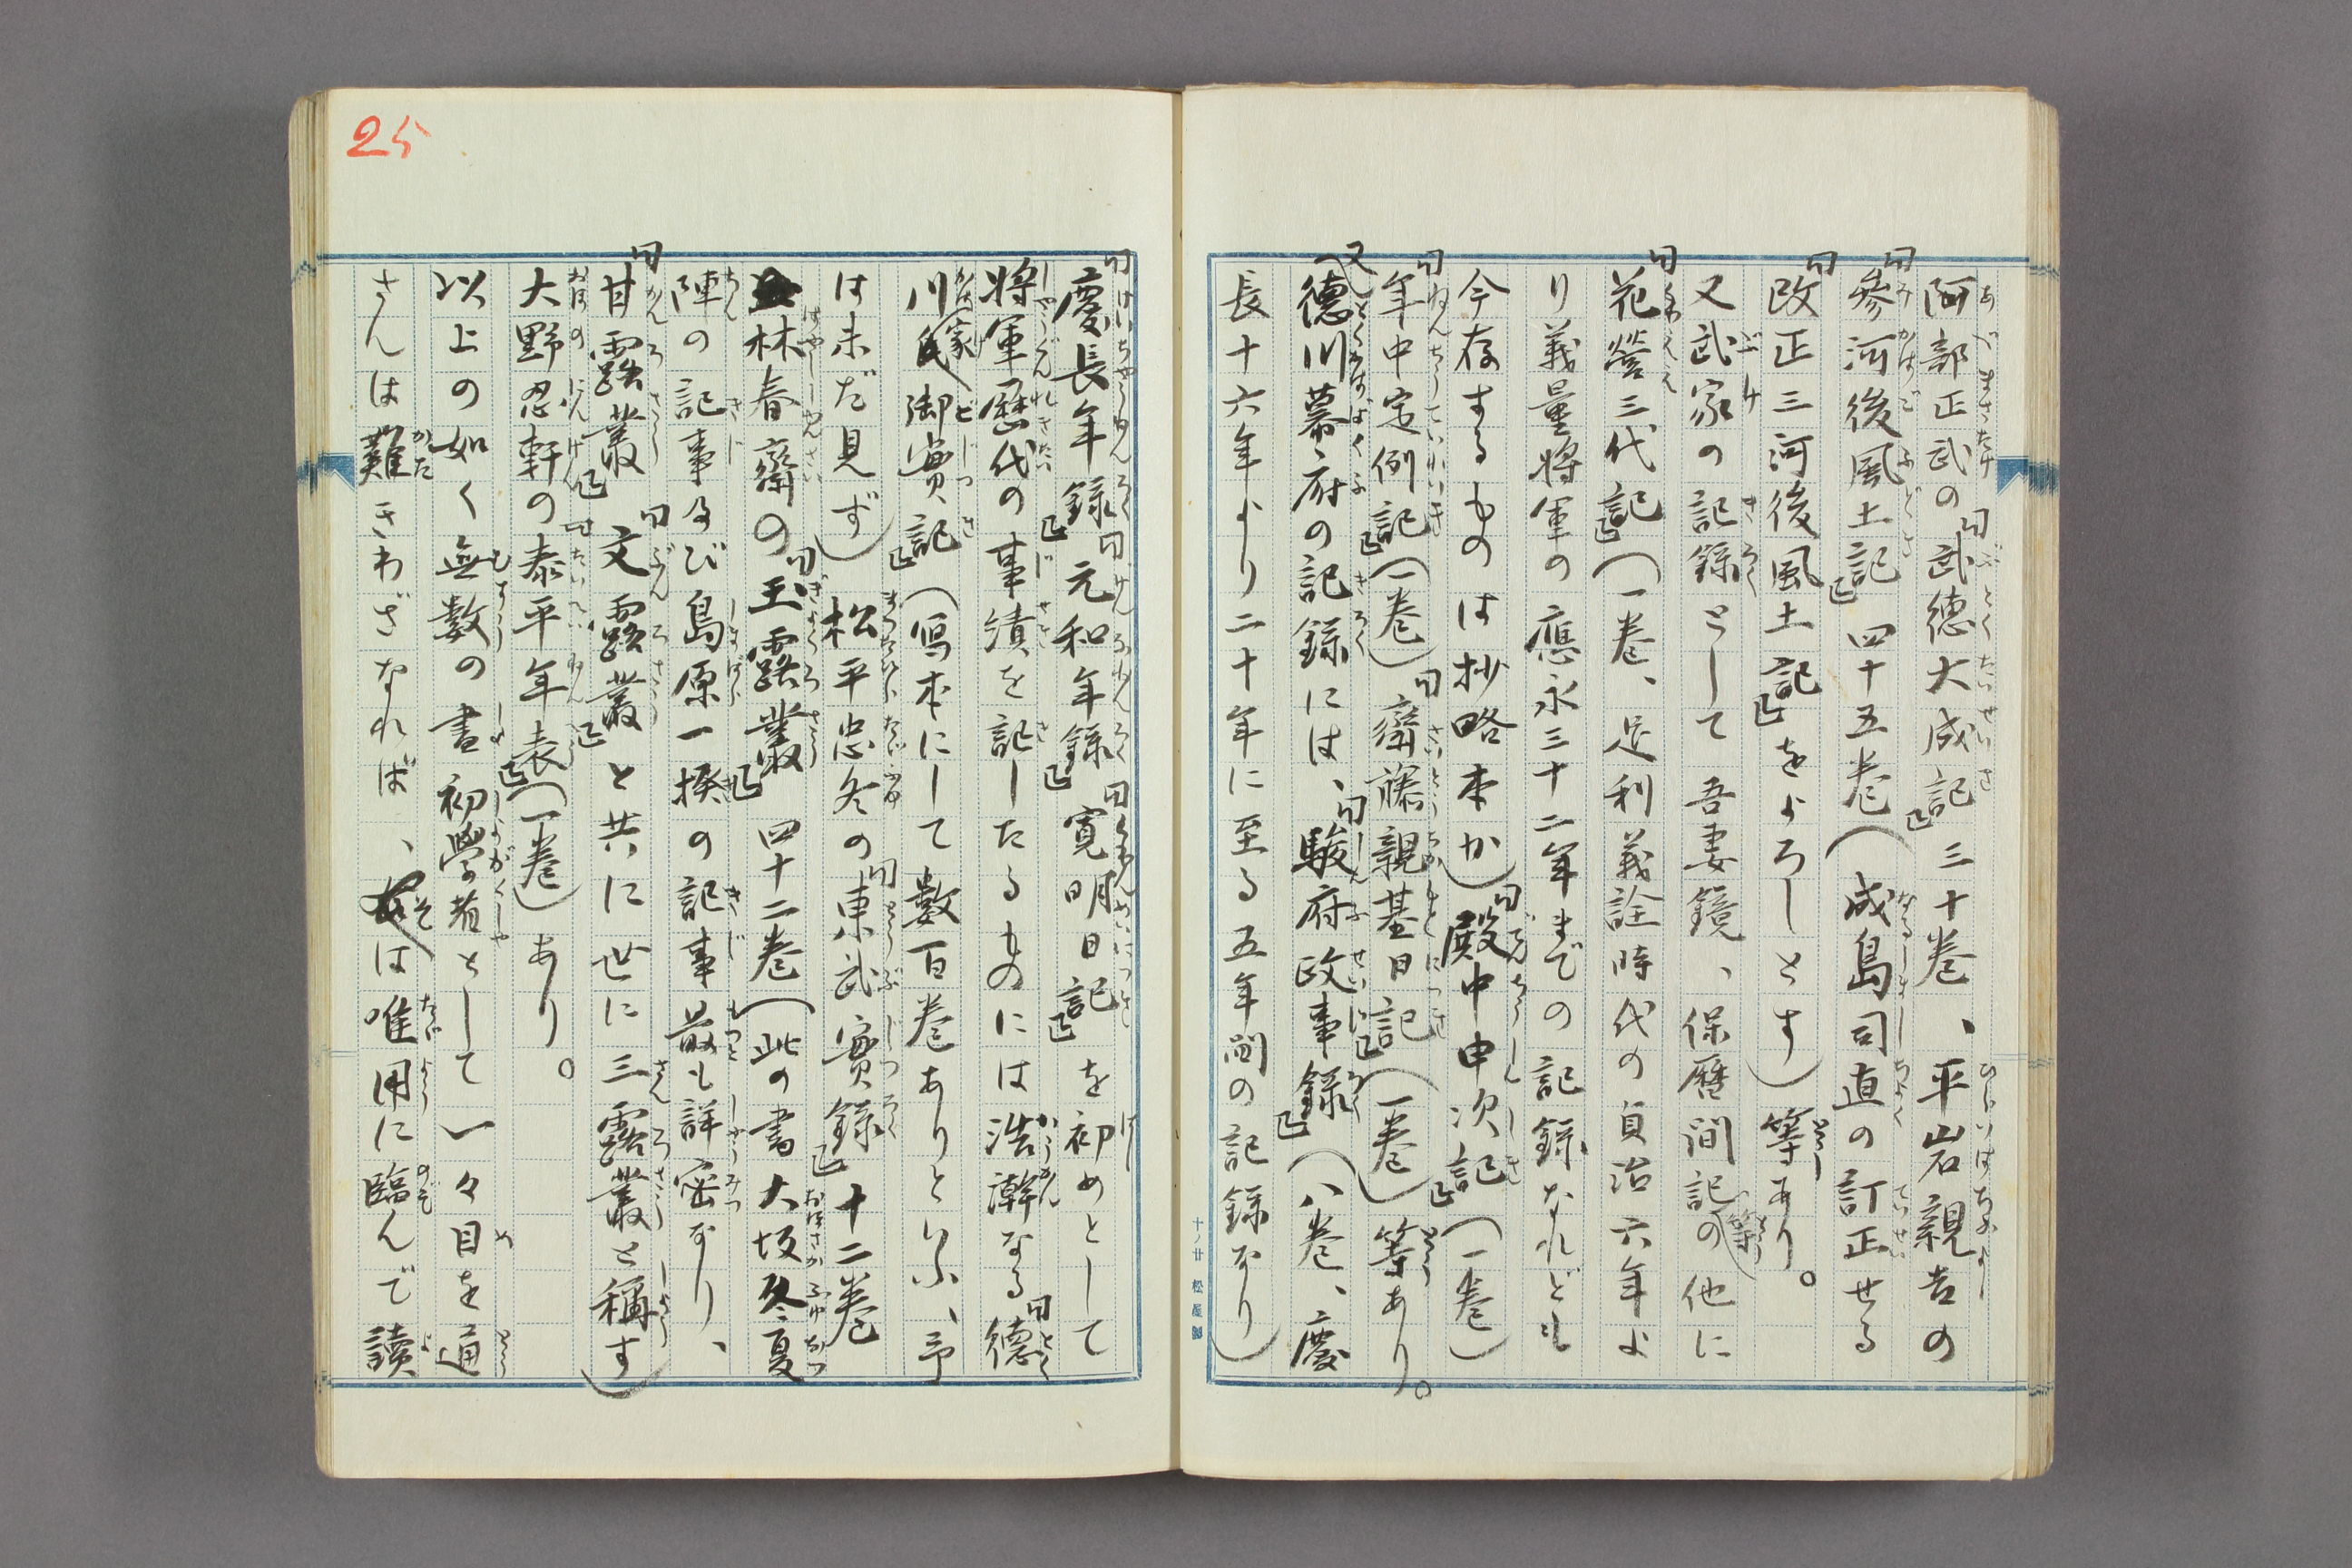 阿部正武の『武徳大成記』三十巻、平岩親吉の
『參河後風土記』四十五巻（成島司直の訂正せる
『改正三河後風土記』をよろしとす）等あり。
又武家の記錄として吾妻鏡、保暦间記等の他に
『花營三代記』（一巻、足利義詮時代の貞治六年よ
り義量将軍の應永三十二年までの記録なれども
今存するものは抄略本か）『殿中申次記』（一巻）
『年中定例記』（一巻）『齋藤親基日記』（一巻）等あり。
又德川幕府の記録には、『駿府政事錄』（八巻、慶
長十六年より二十年に至る五年间の記録なり）
『慶長年錄』『元和年錄』『寛明日記』を初めとして
将軍歴代の事績を記したるものには浩瀚なる『德
川家御實記』（写本にして數百巻ありといふ、予
は未だ見ず）松平忠冬の『東武實錄』十二巻
林春齋の『玉露叢』四十二巻（此の書大坂冬夏
陣の記事及び島原一揆の記事最も詳密なり、
『甘露叢』『文露叢』と共に世に三露叢と稱す）
大野忍軒の『泰平年表』（一巻）あり。
以上の如く無數の書初學者として一々目を通
さんは難きわざなれば、そは唯用に臨んで讀
25
十ノ廿 松屋製